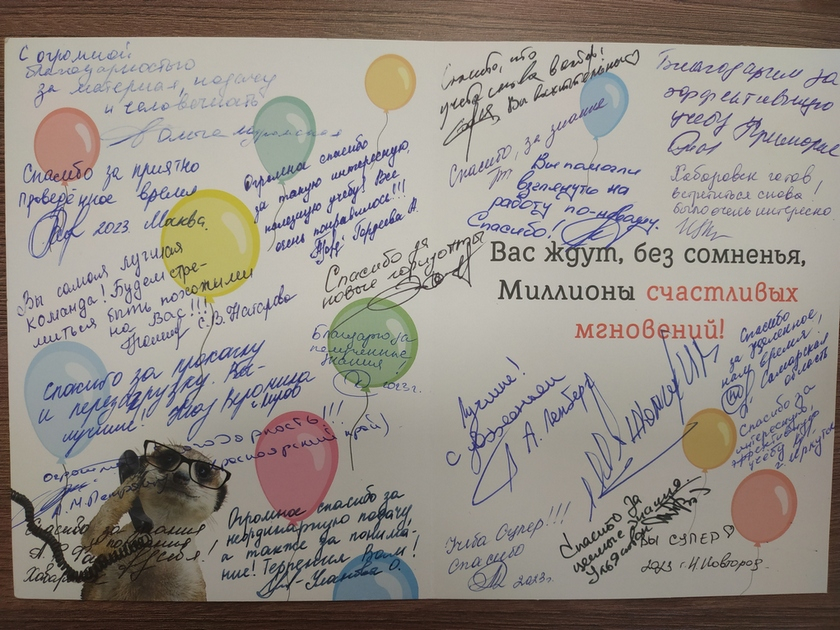 С огромной
благодарностью
за материал, подачу
и человечность
Спасибо за приятно
проведённое время
2023 Москва.
Огромное спасибо
за такую интересную,
полезную учебу! Все
очень понравилось!!!
Гордеева
Вы самая лучшая
команда! Будем стре-
миться быть похожими
на Вас!!!
С.В.
Спасибо за
новые горизонты
Благодарю за
полученные
знания!
2023г.
Спасибо за прокачку
и перезагрузку. Вы-
лучшие! Вероника
г. Киров
благодарность!!!
огромная
(Красноярский край)
Спасибо за знания
себя!
Огромное спасибо за
неординарную подачу,
а также за понима-
ние! Терпения Вам!
О.
Спасибо, что
учеба снова
Вы восхитительны♡
Спасибо, за знание
Вы помогли
взглянуть на
работу по-новому.
Спасибо!
Благодарим за
эффективную
учебу
Хабаровск готов
встретиться снова!
было очень интересно
Вас ждут, без сомненья,
Миллионы счастливых
мгновений!
Спасибо
за уделенное
нам время.
Самарская
область
Лучшие!
С уважением
А.
Спасибо за
интересную,
эффективную
учебу
г. Иркутск
Учёба Супер!!!
Спасибо
2023г.
Спасибо за
ценные знания.
Ульяновск
ВЫ СУПЕР♡
2023 г. Н.Новгород